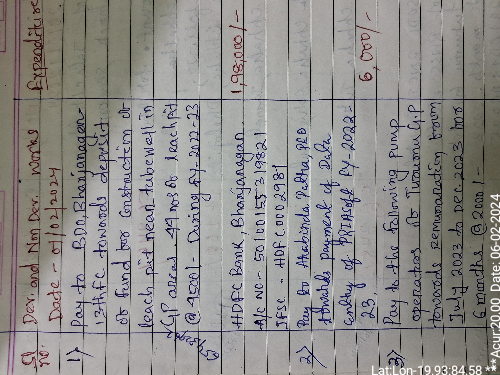 Sl no. Dev. and Non Dev. works Expenditure
Date - 01/02/2024
1) Pay to BDO, Bhanjanagar-
13th fc towards deposit
of fund for construction of
leach pit near tubewell in
GP areas - 44 nos of leach pit
@ 4500/- During FY-2022-23
1,98,000/-
HDFC Bank, Bhanjanagar
A/C NO - 50100155319821
IFSC - HDFC0002981
2) Pay to
towards payment of Data
entry of PRIASoft FY-2022-
23
6,000/-
3) Pay to the following pump
operators of GP
towards remuneration from
July 2023 to Dec 2023 for
6 months @ 2000/-
Lat Lon-19.93:84.58
**Acu:20.00, Date: 06-02-2024